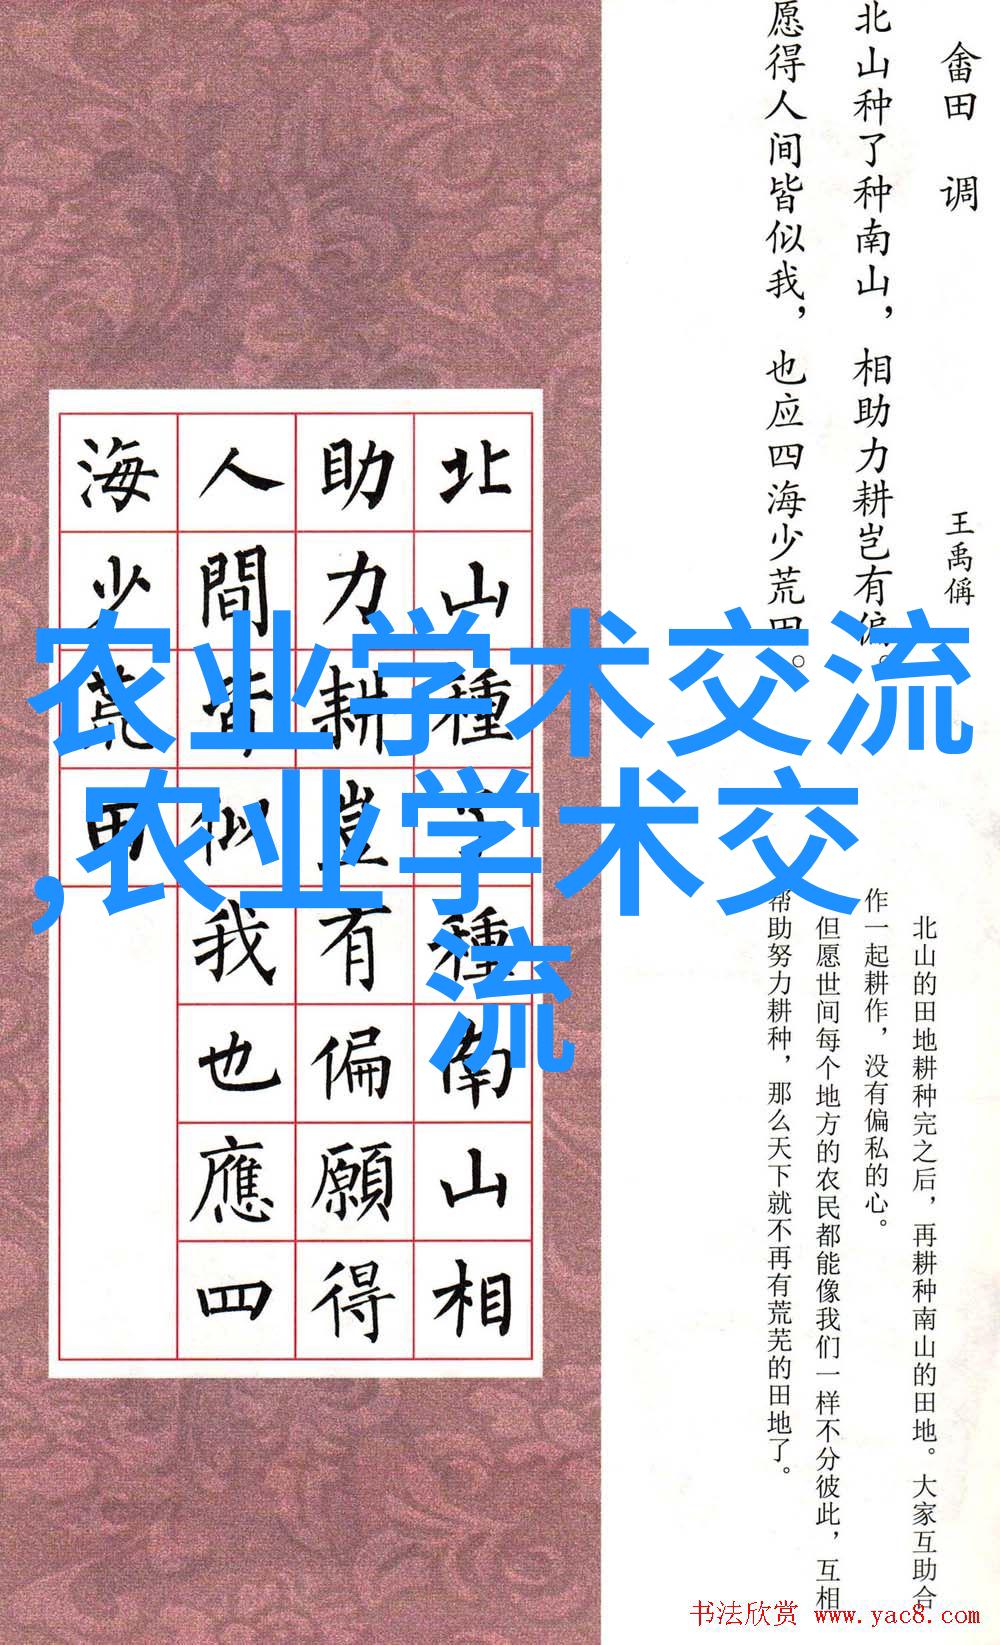 畲田 调
王禹偁
北山种了种南山，相助力耕岂有偏。
愿得人间皆似我，也应四海少荒田。
北山的田地耕种完之后，再耕种南山的田地。大家互助合
作一起耕作，没有偏私的心。
但愿世间每个地方的农民都能像我们一样不分彼此，互相
帮助努力耕种，那么天下就不再有荒芜的田地了。
北山種了種南山相
助力耕豈有偏願得
人間皆似我也應四
海少荒田
农业学术交流
,农业学术交
流
书法欣赏 www.yac8.com